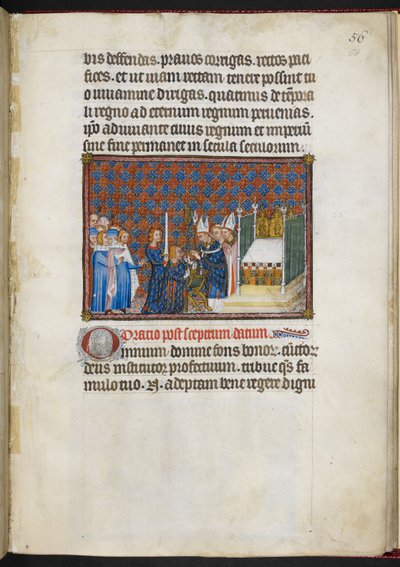 56
bis deffendas. prauos corrigas. rectos paci
fices. et ut uiam rectam tenere possint tu
o iuuamine dirigas. quatinus de tẽpora
li regno ad eternum regnum peruenias.
ip̃o adiuuante cuius regnum et imperiũ
sine fine permanet in secula seculorum.
Oratio post sceptrum datum.
Omnium domine fons bonor. cũctor
deus institutor profectuum. tribue q̃s fa
mulo tuo. N. adeptam bene regere digni